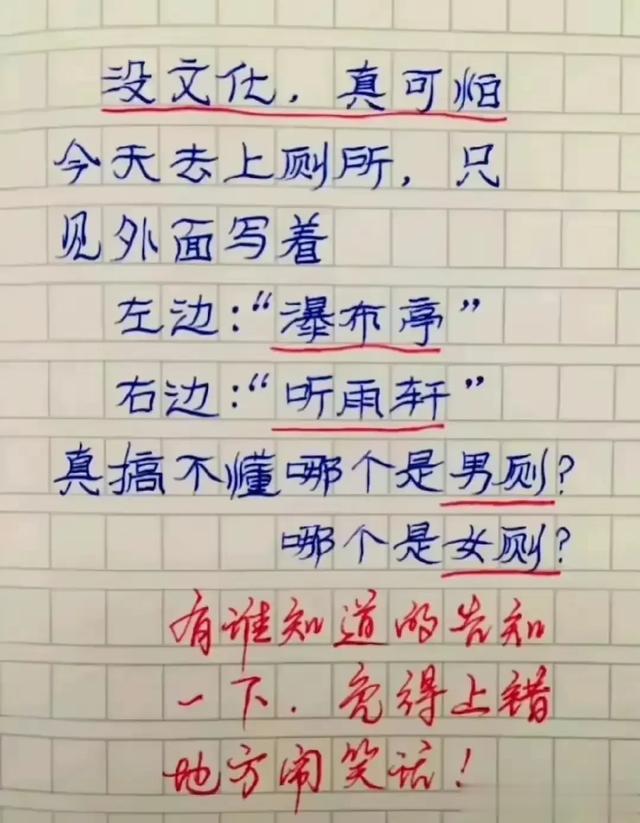 没文化，真可怕
今天去上厕所，只
见外面写着
左边：“瀑布亭”
右边：“听雨轩”
真搞不懂哪个是男厕？
哪个是女厕？
有谁知道的告知
一下．免得上错
地方闹笑话！